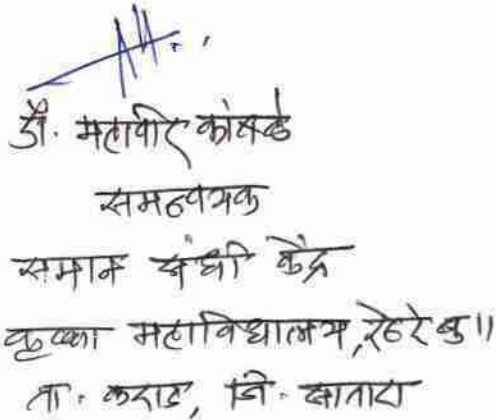 डॉ. महावीर कांबळे
समन्वयक
समान संधी केंद्र
कृष्णा महाविद्यालय, रेठरे बु॥
ता. कराड, जि. सातारा